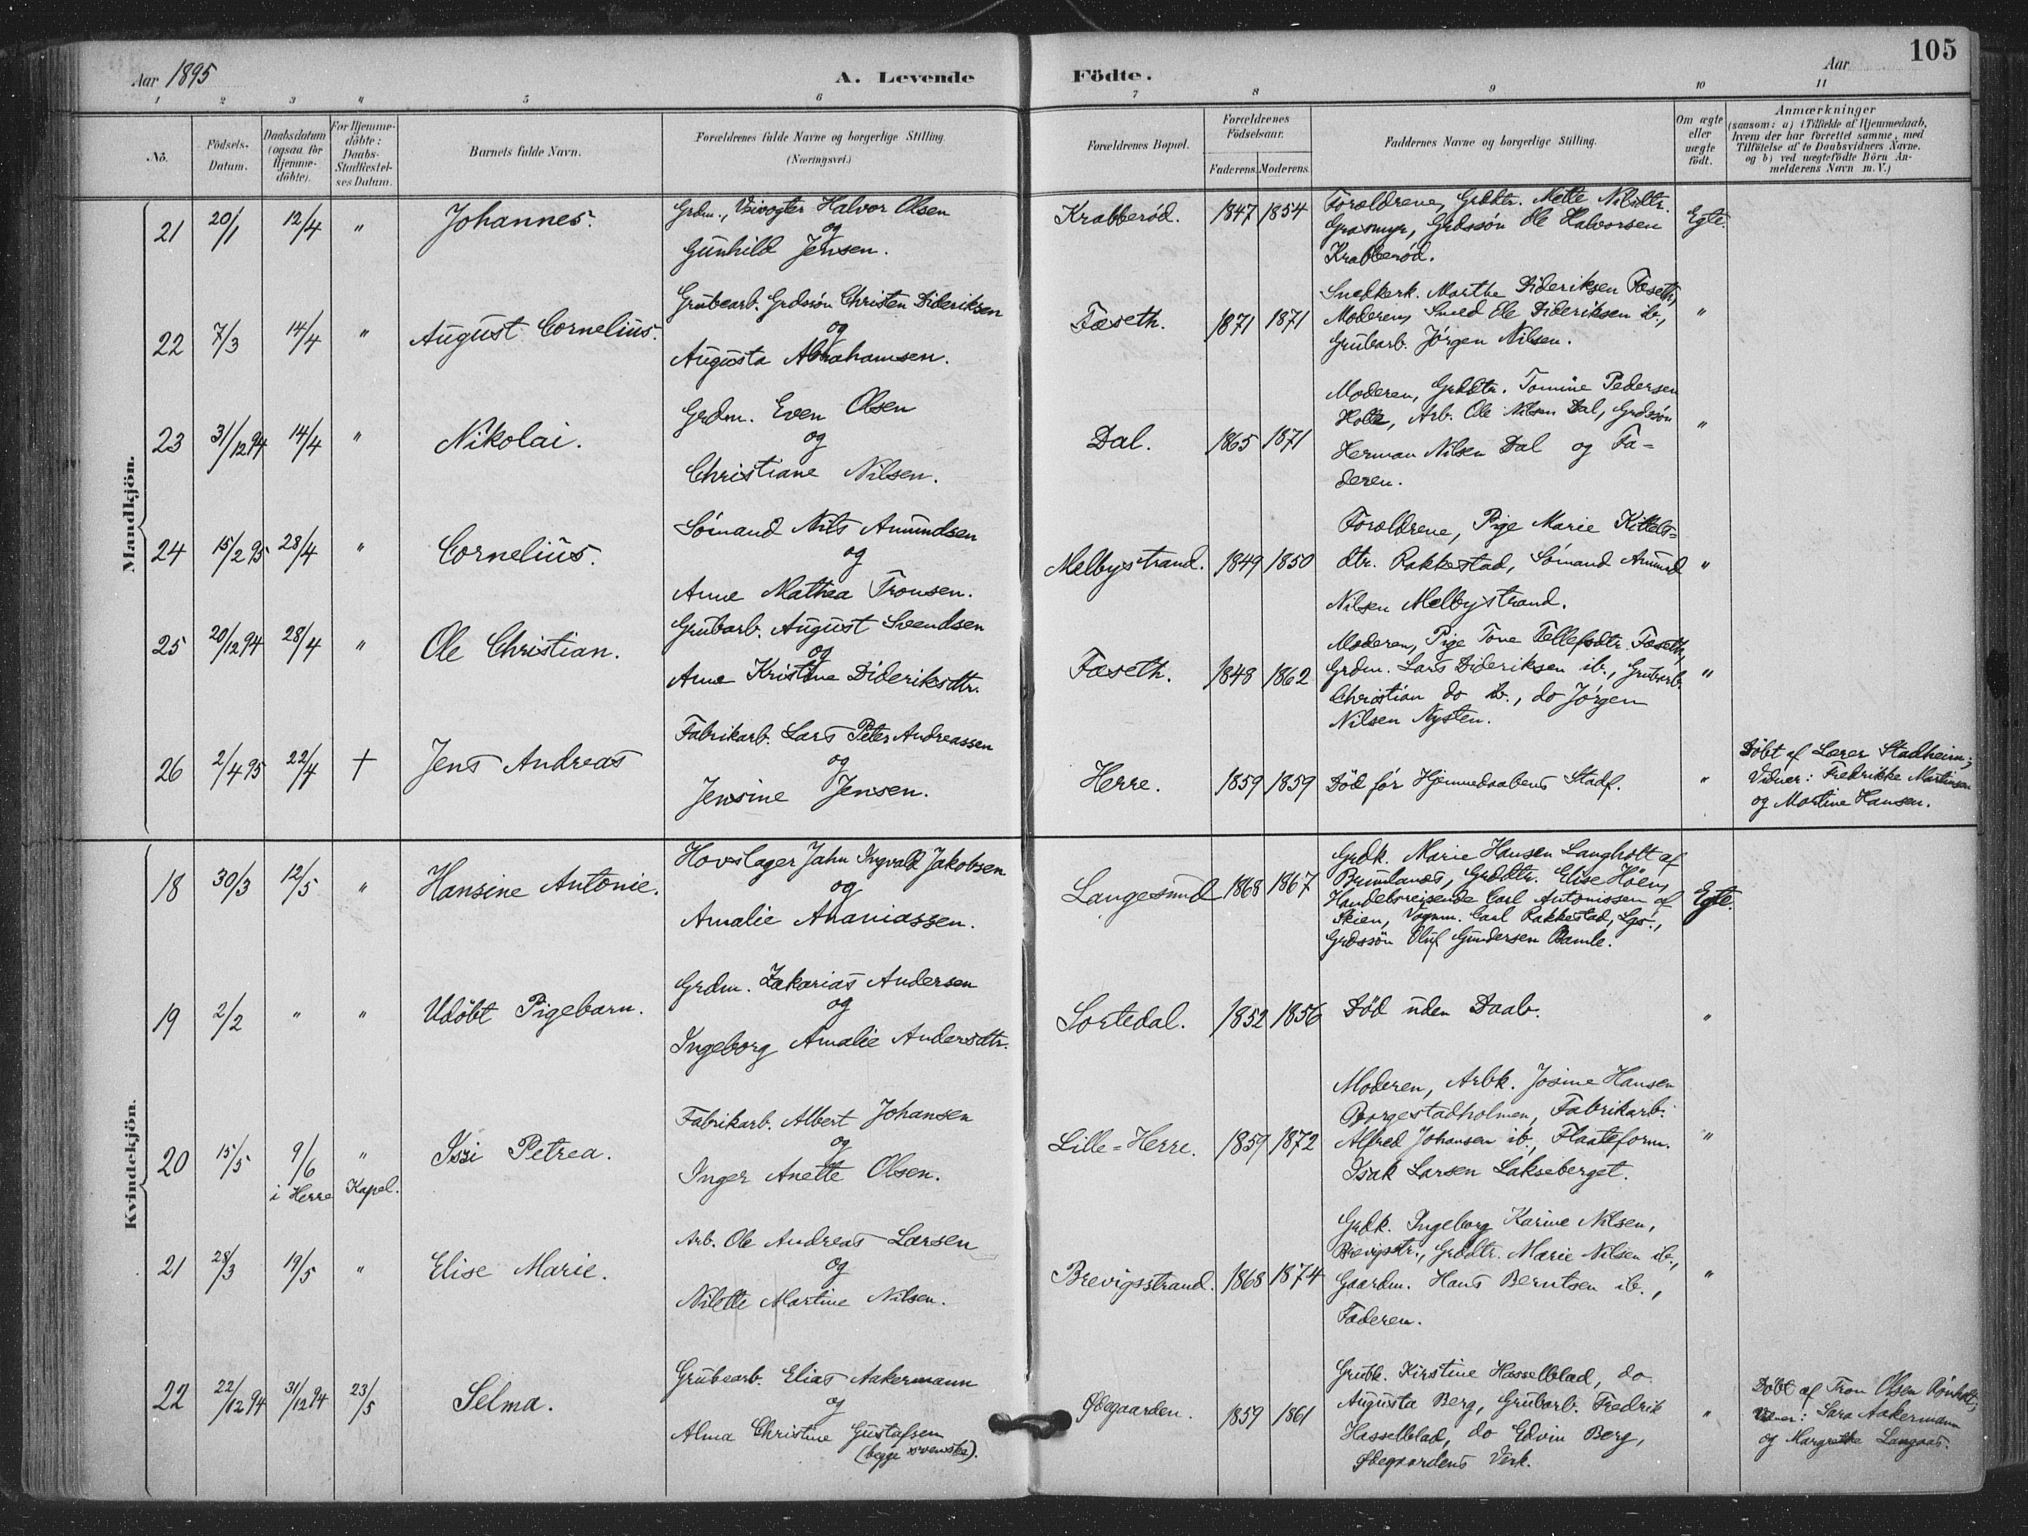 105
Aar 1895
A. Levende
Födte.
Aar
1 2 3 " 5 6 7 8 9 10 11
Nö.
Födsels-
Datum.
Daabsdatum
(ogsaa for
Hjemme-
döbte).
For Hjemme-
döbte:
Daabs-
Stadfæstel-
ses Datum.
Barnets fulde Navn.
Forældrenes fulde Navne og borgerlige Stilling.
(Næringsvei.)
Forældrenes Bopæl.
Forældrenes
Födselsaar.
Faderens. Moderens.
Faddernes Navne og borgerlige Stilling.
Om ægte
eller
uægte
födt.
Anmærkninger
(saasom: a) i Tilfælde af Hjemmedaab,
hvem der har forrettet samme, med
Tilföielse af to Daabsvidners Navne,
og b) ved uægtefödte Börn An-
melderens Navn m. V.)
Mandkjön.
21 20/1 12/4 " Johannes.
Grdm., Halvor Olsen
og
Gunhild Jensen.
Krabberød. 1847 1854
Forældrene, Grddtr. Mette Nilsdtr.
Grasmyr, Grdssøn Ole Halvorsen
Krabberød.
Egte.
22 7/3 14/4 " August Cornelius.
Grubearb. Grdssøn Christen Dideriksen
og
Augusta Abrahamsen.
Fæseth. 1871 1871
Snedkerk. Marthe Dideriksen Fæseth,
Moderen, Smed Ole Dideriksen ib.,
Grubarb. Jørgen Nilsen.
"
23 31/12 94 14/4 " Nikolai.
Grdm. Even Olsen
og
Christiane Nilsen.
Dal. 1865 1871
Moderen, Grddtr. Tomine Pedersen
Holte, Arb. Ole Nilsen Dal, Grdssøn
Herman Nilsen Dal og Fa-
deren.
"
24 15/2 95 28/4 " Cornelius.
Sømand Nils Amundsen
og
Anne Mathea Tronsen.
Melbystrand. 1849 1850
Forældrene, Pige Marie Kittels-
dtr. Rakkestad, Sømand Amund
Nilsen Melbystrand.
"
25 20/12 94 28/4 " Ole Christian.
Grubarb. August Svendsen
og
Anne Kristine Dideriksdtr.
Fæseth. 1848 1862
Moderen, Pige Tone Tellefsdtr. Fæseth,
Grdm. Lars Dideriksen ib., Grubarb.
Christian do ib., do Jørgen
Nilsen Nysten.
"
26 2/4 95 22/4 † Jens Andreas
Fabrikarb. Lars Peter Andreassen
og
Jensine Jensen.
Herre. 1859 1859
Død før Hjemmedaabens Stadf.
"
Døbt af Lærer Stadheim;
Vidner: Fredrikke Martinsen
og Martine Hansen.
Kvindekjön.
18 30/3 12/5 " Hansine Antonie.
Hovslager Jahn Ingvald Jakobsen
og
Amalie Ananiassen.
Langesund 1868 1867
Grdk. Marie Hansen Langholt af
Brunlanæs, Grddtr. Elise Høen,
Handelsreisende Carl Antonissen af
Skien, Vognm. Carl Rakkestad, Lgs.,
Grdssøn Oluf Gundersen Bamle.
Egte.
19 2/2 " " Udøbt Pigebarn.
Grdm. Zakarias Andersen
og
Ingeborg Amalie Andersdtr.
Sortedal. 1852 1856
Død uden Daab.
"
20 15/5 9/6 "
i Herre Kapel.
Issi Petrea.
Fabrikarb. Albert Johansen
og
Inger Anette Olsen.
Lille-Herre. 1859 1872
Moderen, Arbk. Josine Hansen
Borgestadholmen, Fabrikarb.
Alfred Johansen ib., Flaateform.
Isak Larsen Lakseberget.
"
21 28/3 19/5 " Elise Marie.
Arb. Ole Andreas Larsen
og
Nilette Martine Nilsen.
Brevigsstrand. 1868 1874
Grdk. Ingeborg Karine Nilsen,
Brevigsstr., Grddtr. Marie Nilsen ib.,
Gaardm. Hans Berntsen ib.,
Faderen.
"
22 22/12 94 31/12 94 23/5 Selma.
Grubearb. Elias Aakermann
og
Alma Christine Gustafsen
(begge svenske).
Ødegaarden. 1859 1861
Grubk. Kirstine Hasselblad, do
Augusta Berg, Grubarb. Fredrik
Hasselblad, do Edvin Berg,
Ødegaardens Verk.
"
Døbt af Tron Olsen Rønholt;
Vidner: Sara Aakermann
og Margrethe Langaas.